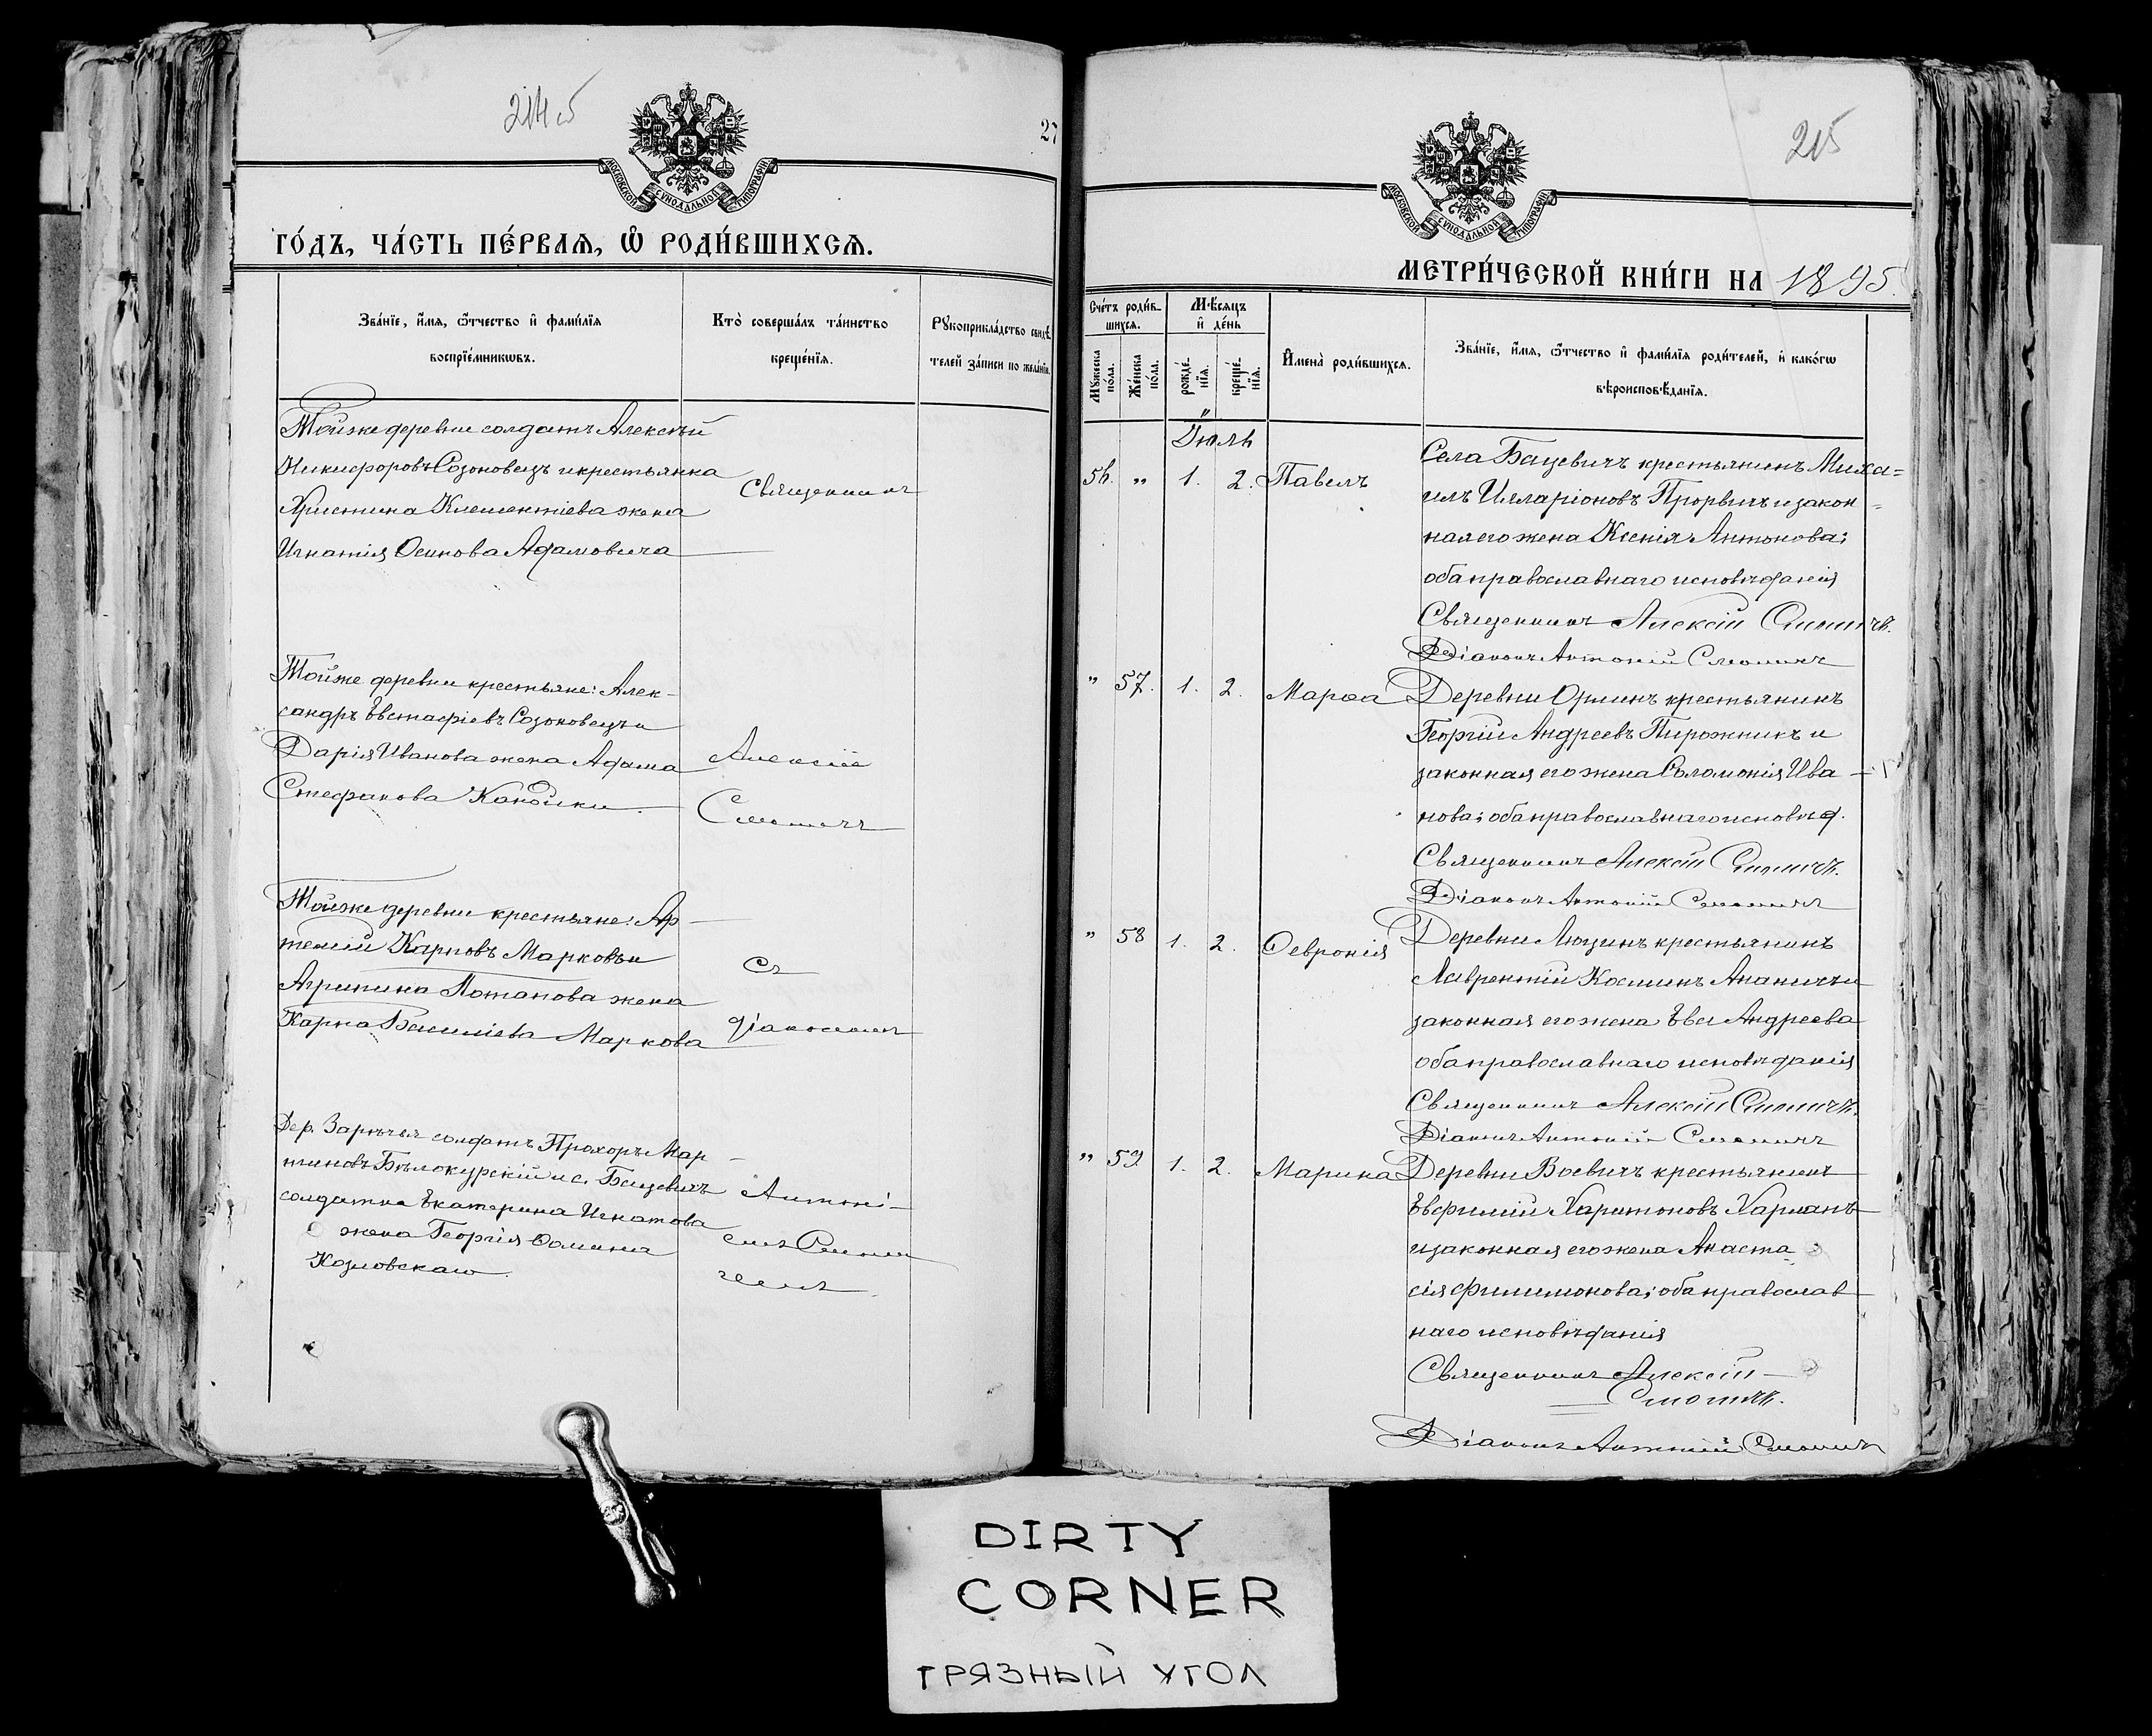 214 об
27
МОСКОВСКОЙ СѴНОДАЛЬНОЙ ТИПОГРАФІИ
ГО́ДЪ, ЧА́СТЬ ПЕ́РВАѦ, Ѡ҆ РОДИ́ВШИХСѦ.
Зва́нїе, и҆́мѧ, ѻ҆́тчество и҆ фами́лїѧ
воспрїе́мникѡвъ.
Кто̀ соверша́лъ та́инство
креще́нїѧ.
Рꙋкоприкла́дство свидѣ́-
телей за́писи по жела́нїю.
Тойже деревни солдатъ Алексѣй
Никифоровъ Созоновецъ и крестьянка
Христина Клементіева жена
Игнатія Осипова Адамовича
Священникъ
Тойже деревни крестьяне: Алек-
сандръ Евстафіевъ Созоновецъ и
Дарія Иванова жена Адама
Стефанова
Алексій
Смоличъ
Тойже деревни крестьяне: Ар-
темій Карповъ Марковъ и
Агрипина Потапова жена
Карпа Василіева Маркова
Съ
діакономъ
Дер. Зарѣчья солдатъ Прохоръ Мар-
тиновъ Бѣлокурскій и с. Бацевичъ
солдатка Екатерина Игнатова
жена Георгія Ѳомина
Козловскаго
Антоні-
емъ Смоли-
чемъ
215
МОСКОВСКОЙ СѴНОДАЛЬНОЙ ТИПОГРАФІИ
МЕТРИ́ЧЕСКОЙ КНИ́ГИ НА 1895.
Сче́тъ роди́в-
шихсѧ.
Мꙋ́жеска по́ла.
Же́нска по́ла.
Мѣ́сѧцъ
и҆ де́нь
рожде́-нїѧ.
креще́-нїѧ.
И҆мена̀ роди́вшихсѧ.
Зва́нїе, и҆́мѧ, ѻ҆́тчество и҆ фами́лїѧ роди́телей, и҆ како́гѡ
вѣроисповѣ́данїѧ.
Іюль
56. „ 1. 2. Павелъ
Села Бацевичъ крестьянинъ Миха-
илъ Илларіоновъ Прорвичъ и закон-
ная его жена Ксенія Антонова;
оба православнаго исповѣданія
Священникъ Алексій Смоличъ.
Діаконъ Антоній Смоличъ
„ 57. 1. 2. Марѳа
Деревни Орлинъ крестьянинъ
Георгій Андреевъ Пирожникъ и
законная его жена Соломонія Ива-
нова; оба православнаго исповѣд.
Священникъ Алексій Смоличъ.
Діаконъ Антоній Смоличъ
„ 58 1. 2. Ѳевронія
Деревни Люцинъ крестьянинъ
Лаврентій Косминъ Ананичъ и
законная его жена Ева Андреева
оба православнаго исповѣданія
Священникъ Алексій Смоличъ.
Діаконъ Антоній Смоличъ
„ 59 1. 2. Марина
Деревни Воевичъ крестьянинъ
Евфимій Харитоновъ Харланъ
и законная его жена Анаста-
сія Филимонова; оба православ-
наго исповѣданія
Священникъ Алексій
Смоличъ.
Діаконъ Антоній Смоличъ
DIRTY
CORNER
ГРЯЗНЫЙ УГОЛ